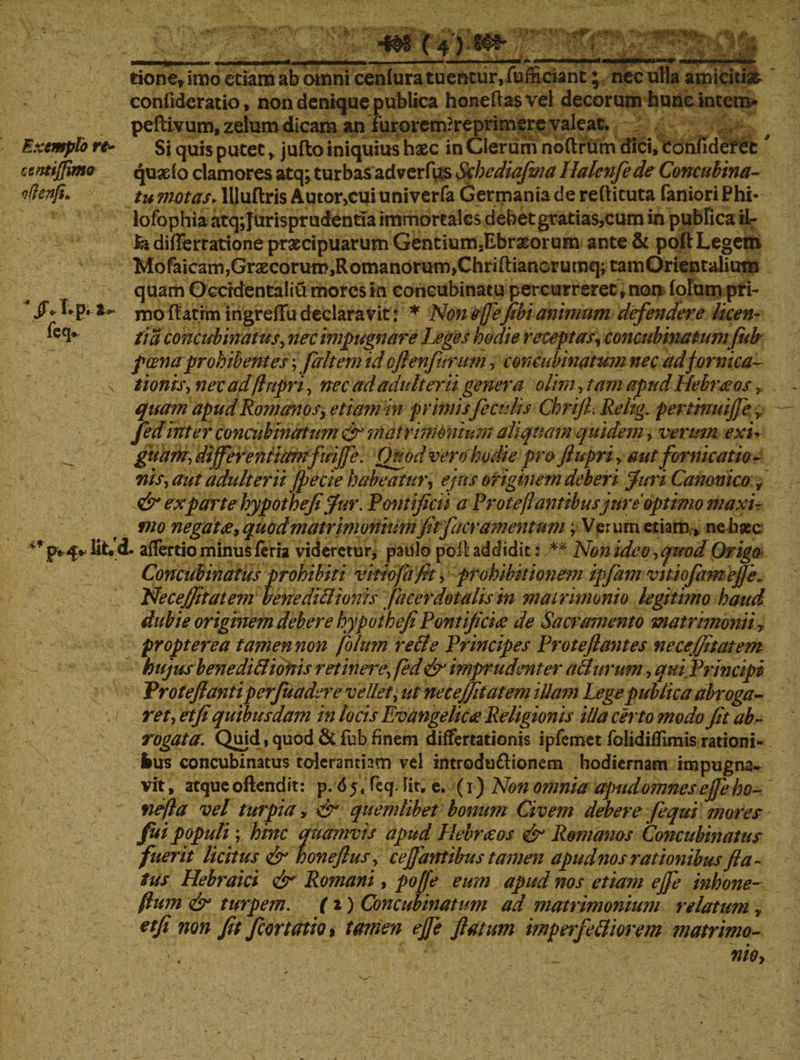 (4)
tione, imo etiam ab omni cenſura tuentur, ſufficiant; nec ulla amicitiæ
conſideratio, non denique publica honeſtas vel decorum hunc intem-
peſtivum, zelum dicam an furorem? reprimere valeat.
Exemplo re-
centiſſimo
oſtenſi.
Si quis putet, juſto iniquius hæc in Clerum noſtrum dici, conſideret
quæſo clamores atq; turbas adverſus Schediaſma Halenſe de Concubina-
tu motas. Illuſtris Autor, cui univerſa Germania de reſtituta ſaniori Phi-
loſophia atq; Jurisprudentia immortales debet gratias, cum in publica il-
la diſſertatione præcipuarum Gentium, Ebræorum ante & poſt Legem
Moſaicam, Græcorum, Romanorum, Chriſtianorumq; tam Orientalium
quam Occidentaliũ mores in concubinatu percurreret, non ſolum pri-
* ſſ. I. p. 2.
ſeq.
mo ſtatim ingreſſu declaravit: * Non eſſe ſibi animum defendere licen-
tiã concubinatus, nec impugnare Leges hodie receptas, concubinatum ſub
pœna prohibentes; ſaltem id oſtenſurum, concubinatum nec ad fornica-
tionis, nec ad ſtupri, nec ad adulterii genera olim, tam apud Hebræos,
quam apud Romanos, etiam in primis ſeculis Chriſt. Relig. pertinuiſſe,
ſed inter concubinatum & matrimonium aliquam quidem, verum exi-
guam, differentiam fuiſſe. Quod vero hodie pro ſtupri, aut fornicatio-
nis, aut adulterii ſpecie habeatur, ejus originem deberi Juri Canonico,
& ex parte hypotheſi Jur. Pontificii a Proteſtantibus jure optimo maxi-
mo negatæ, quod matrimonium ſit ſacramentum; Verum etiam, ne hæc
** p. 4. lit. d.
aſſertio minus ſeria videretur, paulo poſt addidit: ** Non ideo, quod Origo
Concubinatus prohibiti vitioſa ſit, prohibitionem ipſam vitioſam eſſe.
Neceſſitatem benedictionis ſacerdotalis in matrimonio legitimo haud
dubie originem debere hypotheſi Pontificiæ de Sacramento matrimonii,
propterea tamen non ſolum recte Principes Proteſtantes neceſſitatem
hujus benedictionis retinere, ſed & imprudenter acturum, qui Principi
Proteſtanti perſuadere vellet, ut neceſſitatem illam Lege publica abroga-
ret, etſi quibusdam in locis Evangelicæ Religionis illa certo modo ſit ab-
rogata. Quid, quod & ſub finem diſſertationis ipſemet ſolidiſſimis rationi-
bus concubinatus tolerantiam vel introductionem hodiernam impugna-
vit, atque oſtendit: p. 65. ſeq. lit. e. (1) Non omnia apud omnes eſſe ho-
neſta vel turpia, & quemlibet bonum Civem debere ſequi mores
ſui populi; hinc quamvis apud Hebræos & Romanos Concubinatus
fuerit licitus & honeſtus, ceſſantibus tamen apud nos rationibus ſta-
tus Hebraici & Romani, poſſe eum apud nos etiam eſſe inhone-
ſtum & turpem. (2) Concubinatum ad matrimonium relatum,
etſi non ſit ſcortatio, tamen eſſe ſtatum imperfectiorem matrimo-
nio,